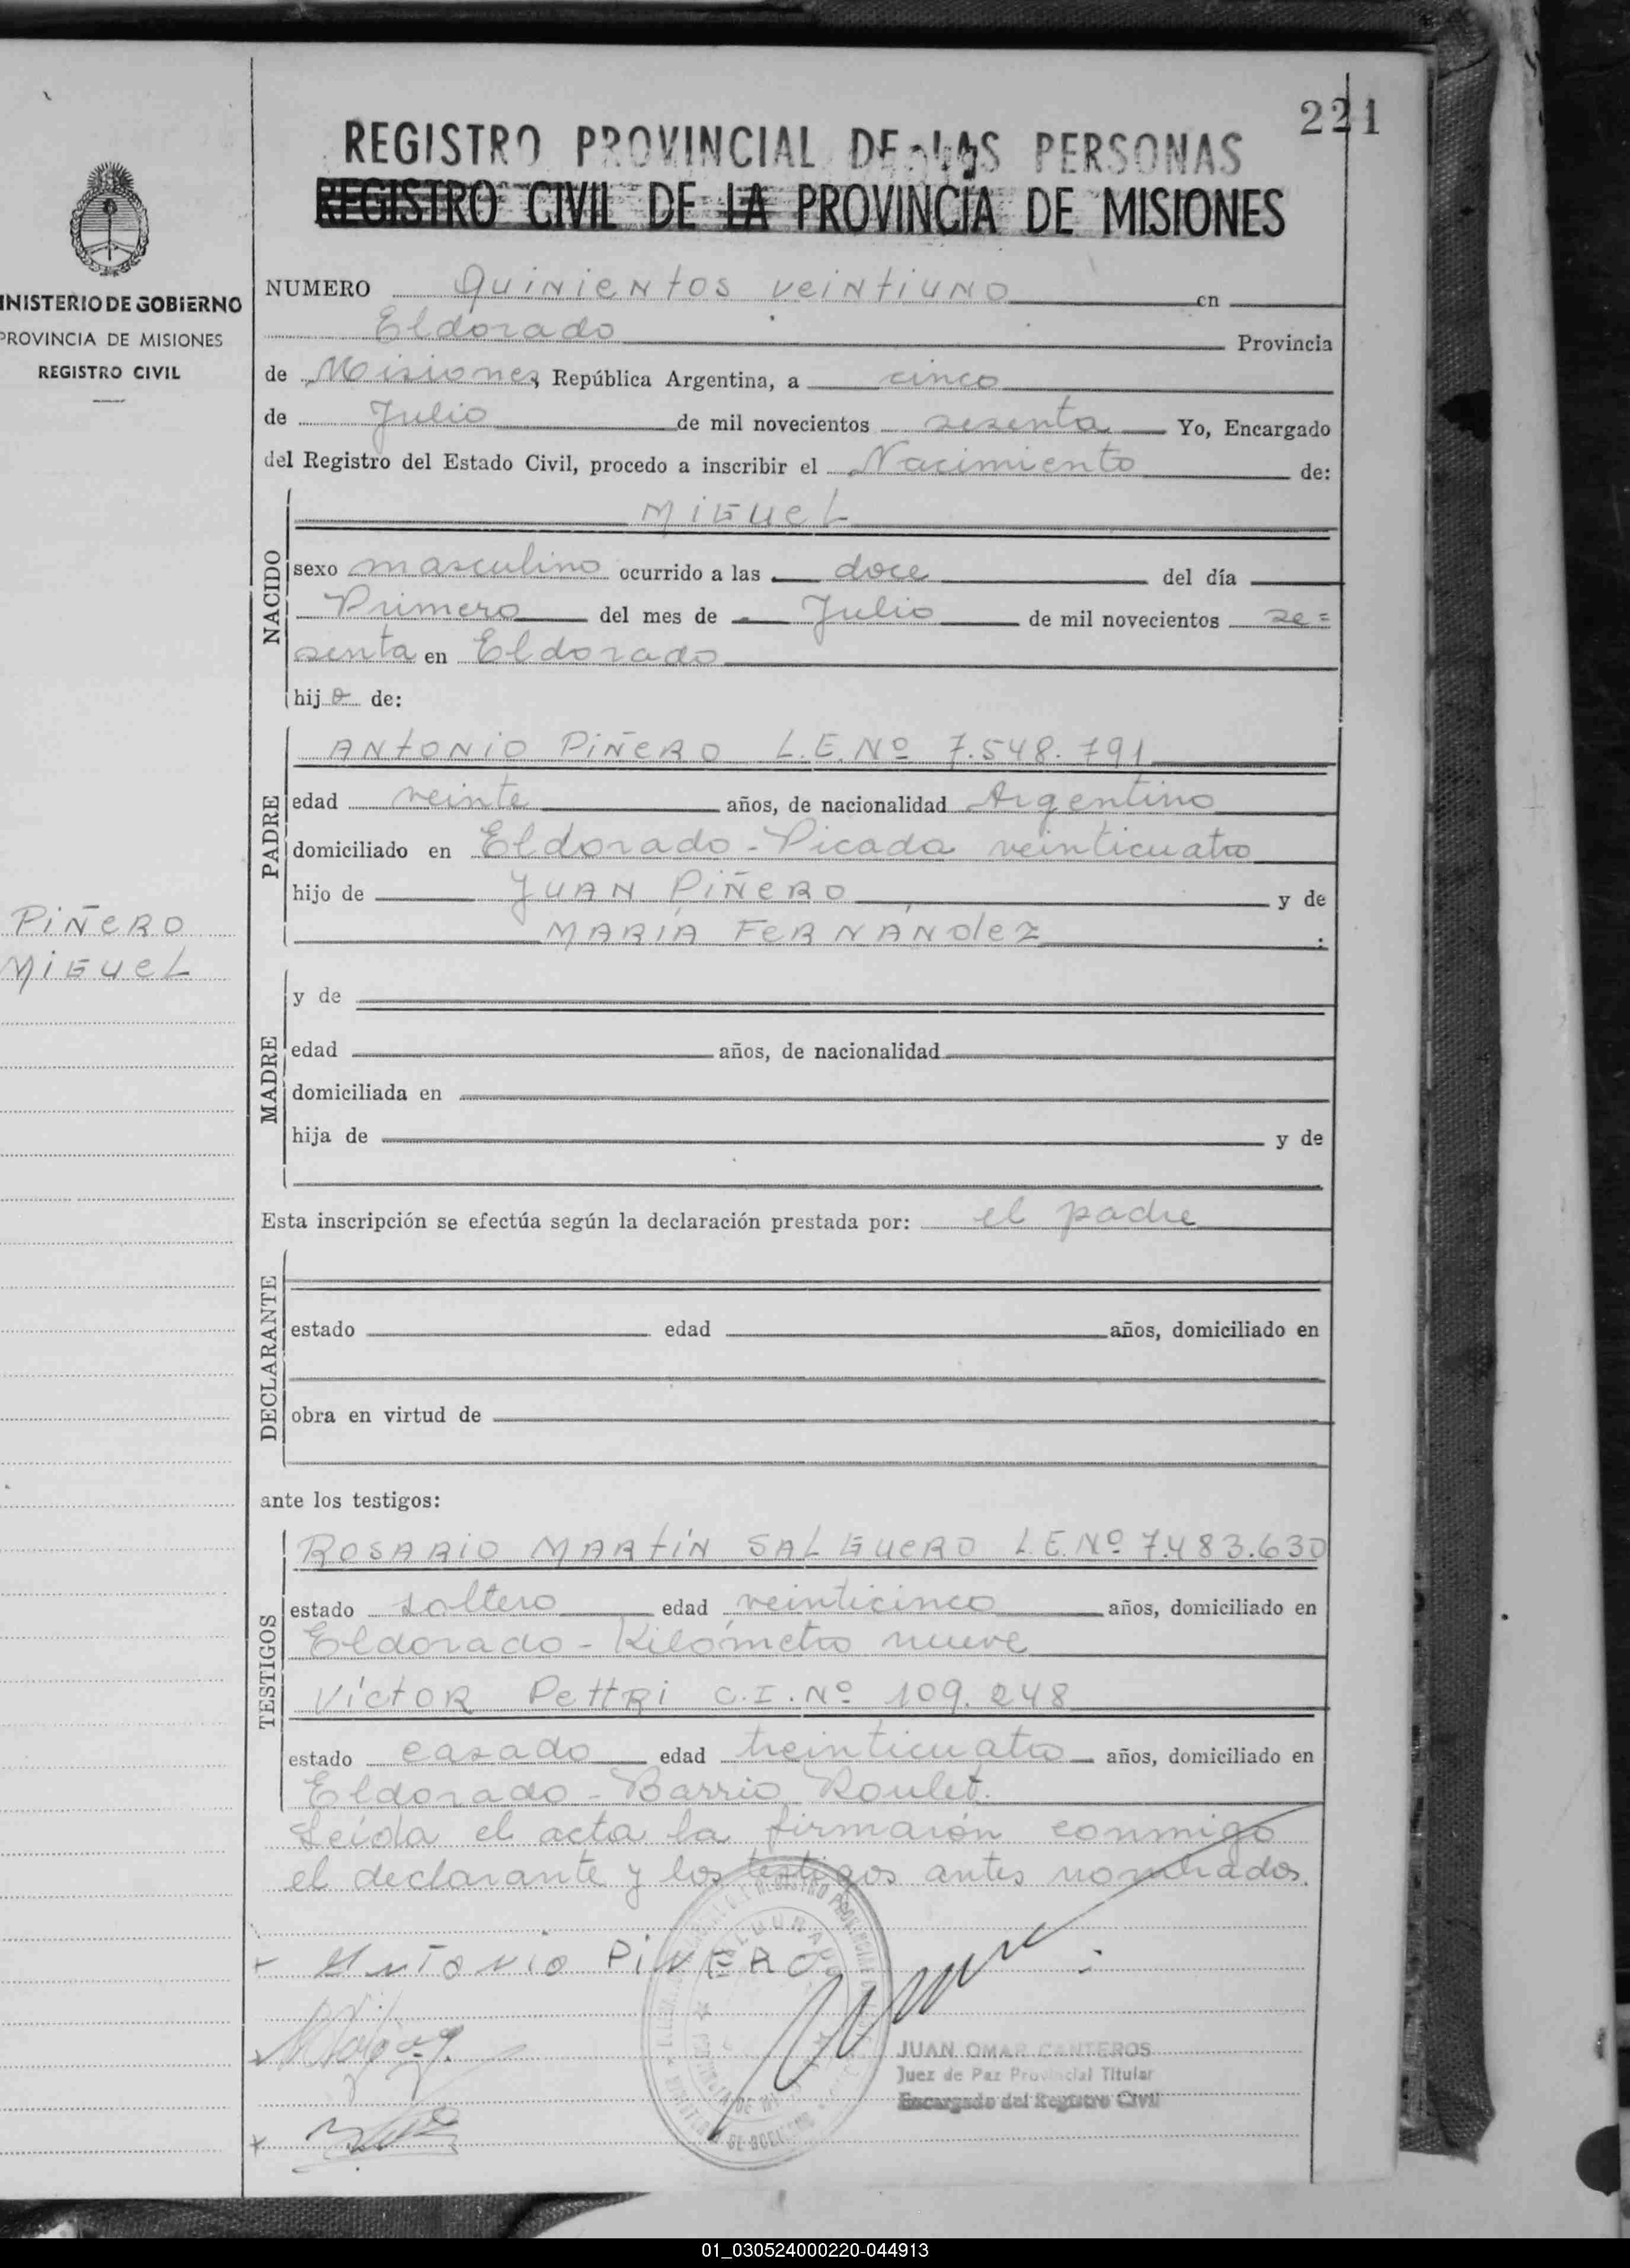 221
REGISTRO PROVINCIAL DE LAS PERSONAS
REGISTRO CIVIL DE LA PROVINCIA DE MISIONES
INISTERIO DE GOBIERNO
PROVINCIA DE MISIONES
REGISTRO CIVIL
PIÑERO
MIGUEL
NUMERO Quinientos veintiuno en
Eldorado Provincia
de Misiones República Argentina, a cinco
de Julio de mil novecientos sesenta Yo, Encargado
del Registro del Estado Civil, procedo a inscribir el Nacimiento de:
NACIDO
MIGUEL
sexo masculino ocurrido a las doce del día
Primero del mes de Julio de mil novecientos se=
senta en Eldorado
hijo de:
PADRE
ANTONIO PIÑERO L.E.Nº 7.548.791
edad veinte años, de nacionalidad Argentino
domiciliado en Eldorado - Picada veinticuatro
hijo de JUAN PIÑERO y de
MARÍA FERNÁNdez.
MADRE
y de
edad años, de nacionalidad
domiciliada en
hija de y de
Esta inscripción se efectúa según la declaración prestada por: el padre
DECLARANTE
estado edad años, domiciliado en
obra en virtud de
ante los testigos:
TESTIGOS
ROSARIO MARTÍN SALGUERO L.E.Nº 7.483.630
estado soltero edad veinticinco años, domiciliado en
Eldorado - Kilómetro nueve
VÍCTOR PETTRI C.I.Nº 109.248
estado casado edad treinticuatro años, domiciliado en
Eldorado - Barrio Roulet.
Leída el acta la firmaron conmigo
el declarante y los testigos antes nombrados.
ANTONIO PIÑERO
JUAN OMAR CANTEROS
Juez de Paz Provincial Titular
Encargado del Registro Civil
01_030524000220-044913